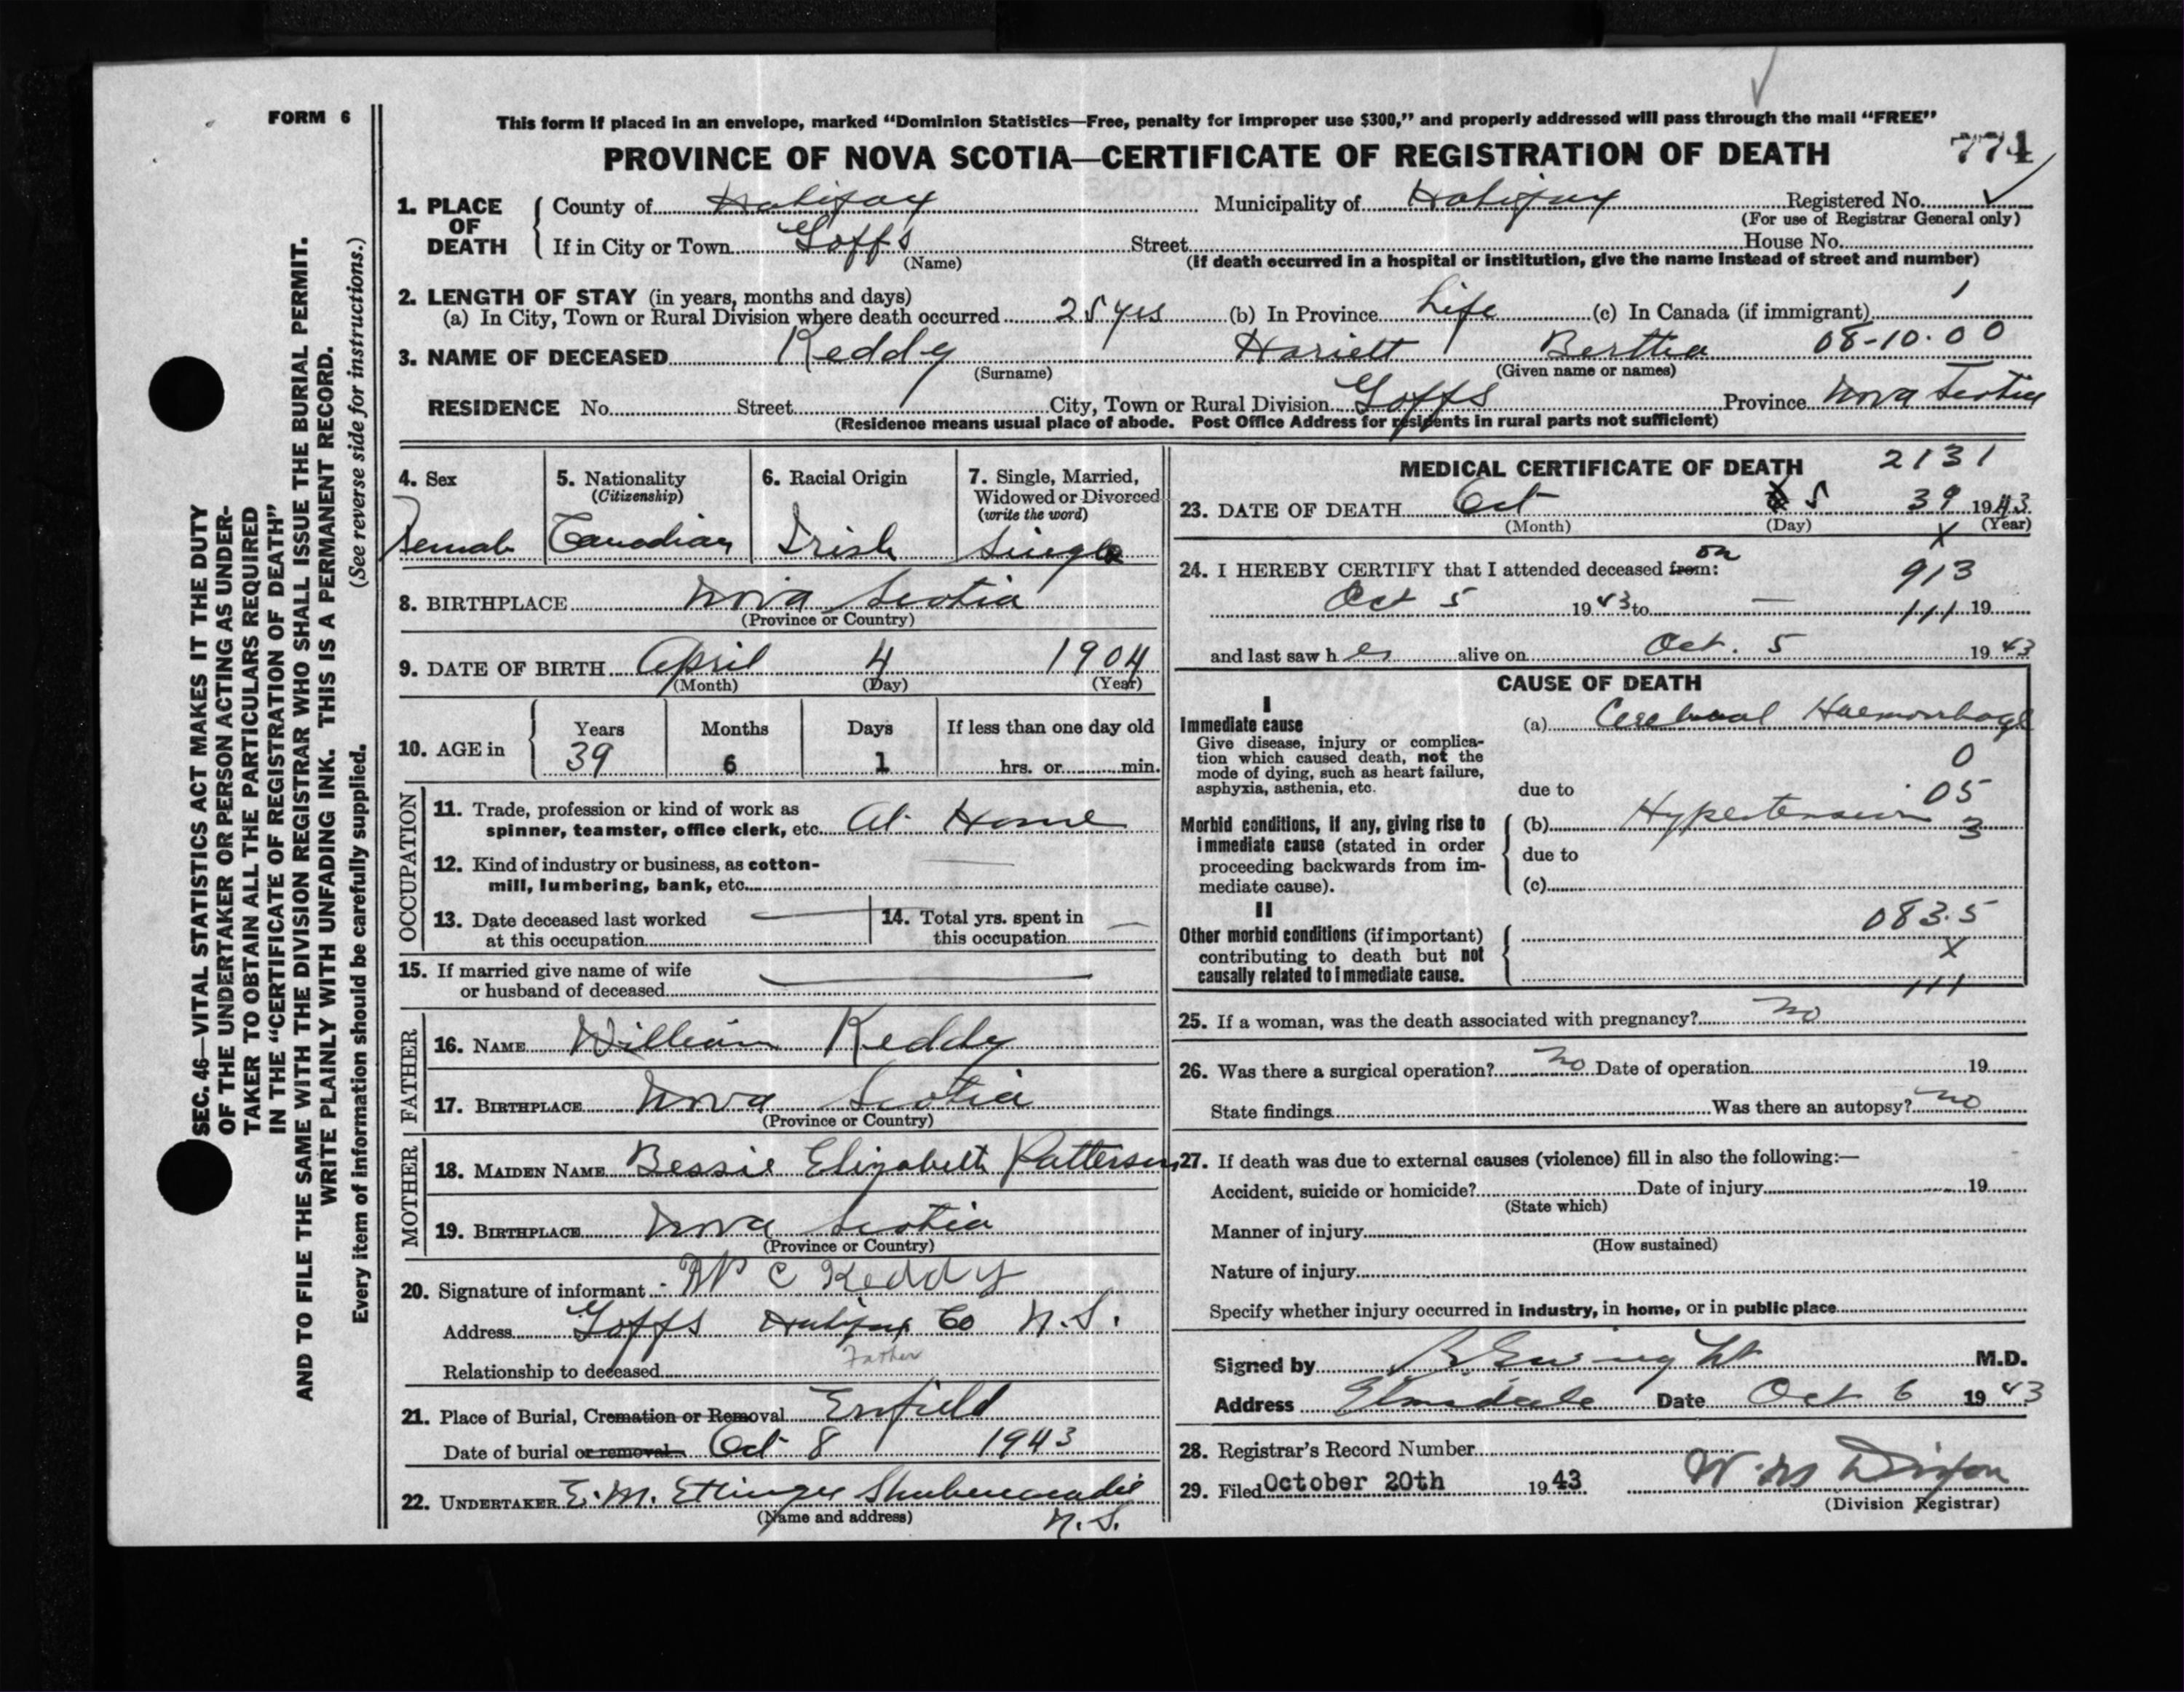 FORM 6
This form if placed in an envelope, marked “Dominion Statistics—Free, penalty for improper use $300,” and properly addressed will pass through the mail “FREE”
PROVINCE OF NOVA SCOTIA—CERTIFICATE OF REGISTRATION OF DEATH 774
1. PLACE OF DEATH
County of Halifax Municipality of Halifax Registered No. ✓
(For use of Registrar General only)
If in City or Town Goffs Street House No.
(Name) (If death occurred in a hospital or institution, give the name instead of street and number)
2. LENGTH OF STAY (in years, months and days)
(a) In City, Town or Rural Division where death occurred 25 yrs (b) In Province Life (c) In Canada (if immigrant) 1
3. NAME OF DECEASED Keddy Hariett Bertha 08-10-00
(Surname) (Given name or names)
RESIDENCE No. Street City, Town or Rural Division Goffs Province Nova Scotia
(Residence means usual place of abode. Post Office Address for residents in rural parts not sufficient)
4. Sex 5. Nationality (Citizenship) 6. Racial Origin 7. Single, Married, Widowed or Divorced (write the word)
Female Canadian Irish Single
8. BIRTHPLACE Nova Scotia
(Province or Country)
9. DATE OF BIRTH April 4 1904
(Month) (Day) (Year)
10. AGE in Years Months Days If less than one day old
39 6 1 hrs. or min.
OCCUPATION
11. Trade, profession or kind of work as
spinner, teamster, office clerk, etc. At Home
12. Kind of industry or business, as cotton-
mill, lumbering, bank, etc.
13. Date deceased last worked
at this occupation
14. Total yrs. spent in
this occupation
15. If married give name of wife
or husband of deceased
FATHER
16. NAME William Keddy
17. BIRTHPLACE Nova Scotia
(Province or Country)
MOTHER
18. MAIDEN NAME Bessie Elizabeth Patterson
19. BIRTHPLACE Nova Scotia
(Province or Country)
20. Signature of informant W C Keddy
Address Goffs Halifax Co N.S.
Relationship to deceased Father
21. Place of Burial, Cremation or Removal Enfield
Date of burial or removal Oct 8 1943
22. UNDERTAKER E. M. Ettinger Shubenacadie
(Name and address) N.S.
MEDICAL CERTIFICATE OF DEATH 2131
23. DATE OF DEATH Oct 5 39 1943
(Month) (Day) (Year)
X
24. I HEREBY CERTIFY that I attended deceased from: on 913
Oct 5 1943 to — 111 19
and last saw her alive on Oct. 5 1943
CAUSE OF DEATH
I
Immediate cause (a) Cerebral Haemorrhage
Give disease, injury or complica-
tion which caused death, not the
mode of dying, such as heart failure,
asphyxia, asthenia, etc.
0
due to 05
Morbid conditions, if any, giving rise to (b) Hypertension 3
immediate cause (stated in order
proceeding backwards from im-
mediate cause).
due to
(c)
II
Other morbid conditions (if important)
contributing to death but not
causally related to immediate cause.
083.5
X
111
25. If a woman, was the death associated with pregnancy? no
26. Was there a surgical operation? no Date of operation 19
State findings Was there an autopsy? no
27. If death was due to external causes (violence) fill in also the following:—
Accident, suicide or homicide? Date of injury 19
(State which)
Manner of injury
(How sustained)
Nature of injury
Specify whether injury occurred in industry, in home, or in public place
Signed by M.D.
Address Elmsdale Date Oct 6 1943
28. Registrar's Record Number
29. Filed October 20th 1943 Dixon
(Division Registrar)
SEC. 46—VITAL STATISTICS ACT MAKES IT THE DUTY
OF THE UNDERTAKER OR PERSON ACTING AS UNDER-
TAKER TO OBTAIN ALL THE PARTICULARS REQUIRED
IN THE “CERTIFICATE OF REGISTRATION OF DEATH”
AND TO FILE THE SAME WITH THE DIVISION REGISTRAR WHO SHALL ISSUE THE BURIAL PERMIT.
WRITE PLAINLY WITH UNFADING INK. THIS IS A PERMANENT RECORD.
Every item of information should be carefully supplied. (See reverse side for instructions.)